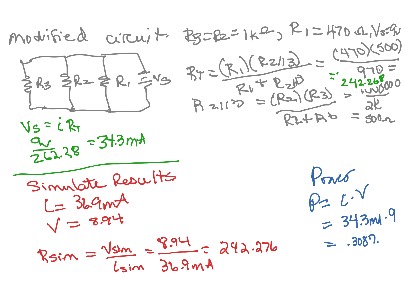 modified circuit R3=R2=1kΩ, R1=470Ω, Vs=9v
RT = (R1)(R2//3) / R1 + R2//3 = (470)(500) / 970 =
= 242.268
R3 R2 R1 Vs
R2//3 = (R2)(R3) / R2+R3 = 1000000 / 2k = 500Ω
Vs = i RT
9v / 262.28 = 34.3mA
Simulate Results
i = 36.9mA
V = 8.94
Rsim = Vsim / isim = 8.94 / 36.9mA = 242.276
Power
P = i.V
= 34.3mA.9
= .3087